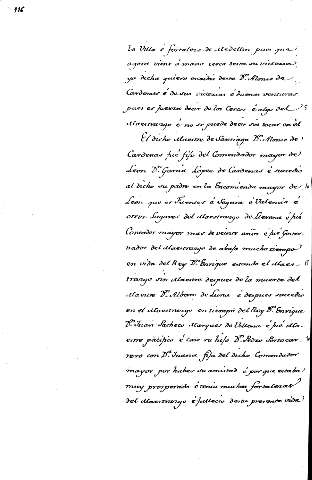 116
la Villa é fortaleza de Medellin pues que
agora viene á mano cerca desta su victoria
ya dicha quiero escribir deste Dn. Alonso de
Cardenas é de su succession é buenas venturas
pues es fuerza decir de los Cercos é algo del
Maestrazgo é no se puede decir sin tocar en él
El dicho Maestre de Santiago Dn. Alonso de
Cardenas fué fijo del Comendador mayor de
Leon Dn. Garcia Lopez de Cardenas é sucedió
al dicho su padre en la Encomienda mayor de
Leon que es Fuentes é Segura é Valencia é
otros Lugares del Maestrazgo de Llerena é fué
Comendador mayor mas de veinte años é fué Gover-
nador del Maestrazgo de abajo mucho tiempo
en vida del Rey Dn. Enrique estando el Maes-
trazgo sin Maestre despues de la muerte del
Maestre Dn. Alvaro de Luna é despues sucedio
en el Maestrazgo en tiempo del Rey Dn. Enrique
Dn. Juan Pacheco Marques de Villena é fué Ma-
estre pacifico é caso su hijo Dn. Pedro Portocar-
rero con Da. Juana fija del dicho Comendador
mayor por haber su amistad é porque estaba
muy prosperado é tenia muchas fortalezas
del Maestrazgo é falleció desta presente vida